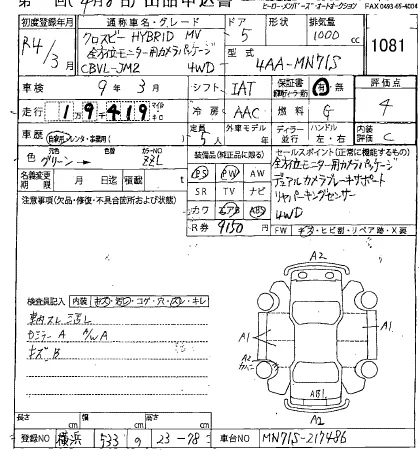 ヒーローメンバーズ・オートオークション FAX 0493-65-4004
初度登録年月 通称車名・グレード ドア 形状 排気量
R4/3 クロスビー HYBRID MV 5 1000 cc
全方位モニター用カメラパッケージ
CBVL-JM2 4WD
型式 4AA-MN71S
1081
車検 9年3月 シフト IAT 保証書 有・無 評価点
走行 1万9419 km 冷房 AAC 燃料 G 4
車歴 自家用 レンタ・事務用 定員 5人 外車モデル ディーラー 並行 ハンドル 左・右 内装評価 C
色 元色 グリーン→ 色替 カラーNO ZZL
名義変更期限 月 日迄 積載 t
装備品(純正品に限る)
PS PW AW
SR TV ナビ
カワ エアB ABS
R券 9150円
セールスポイント(正常に機能するもの)
全方位モニター用カメラパッケージ
デュアルカメラブレーキサポート
リヤパーキングセンサー
4WD
FW キズ・ヒビ割・リペア跡・X要
注意事項(欠品・修復・不具合箇所および状態)
検査員記入 内装 キズ・汚レ・コゲ・穴・スレ・キレ
車内スレ 汚レ
カミラー A A/W A
キズ B
A2
A1
A1
A2
AB1
A2
長さ cm 幅 cm 高さ cm
登録NO 横浜 533 の 23-78 車台NO MN71S-217486